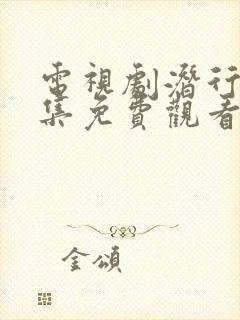 電視劇潛行
集免費觀看
金頌